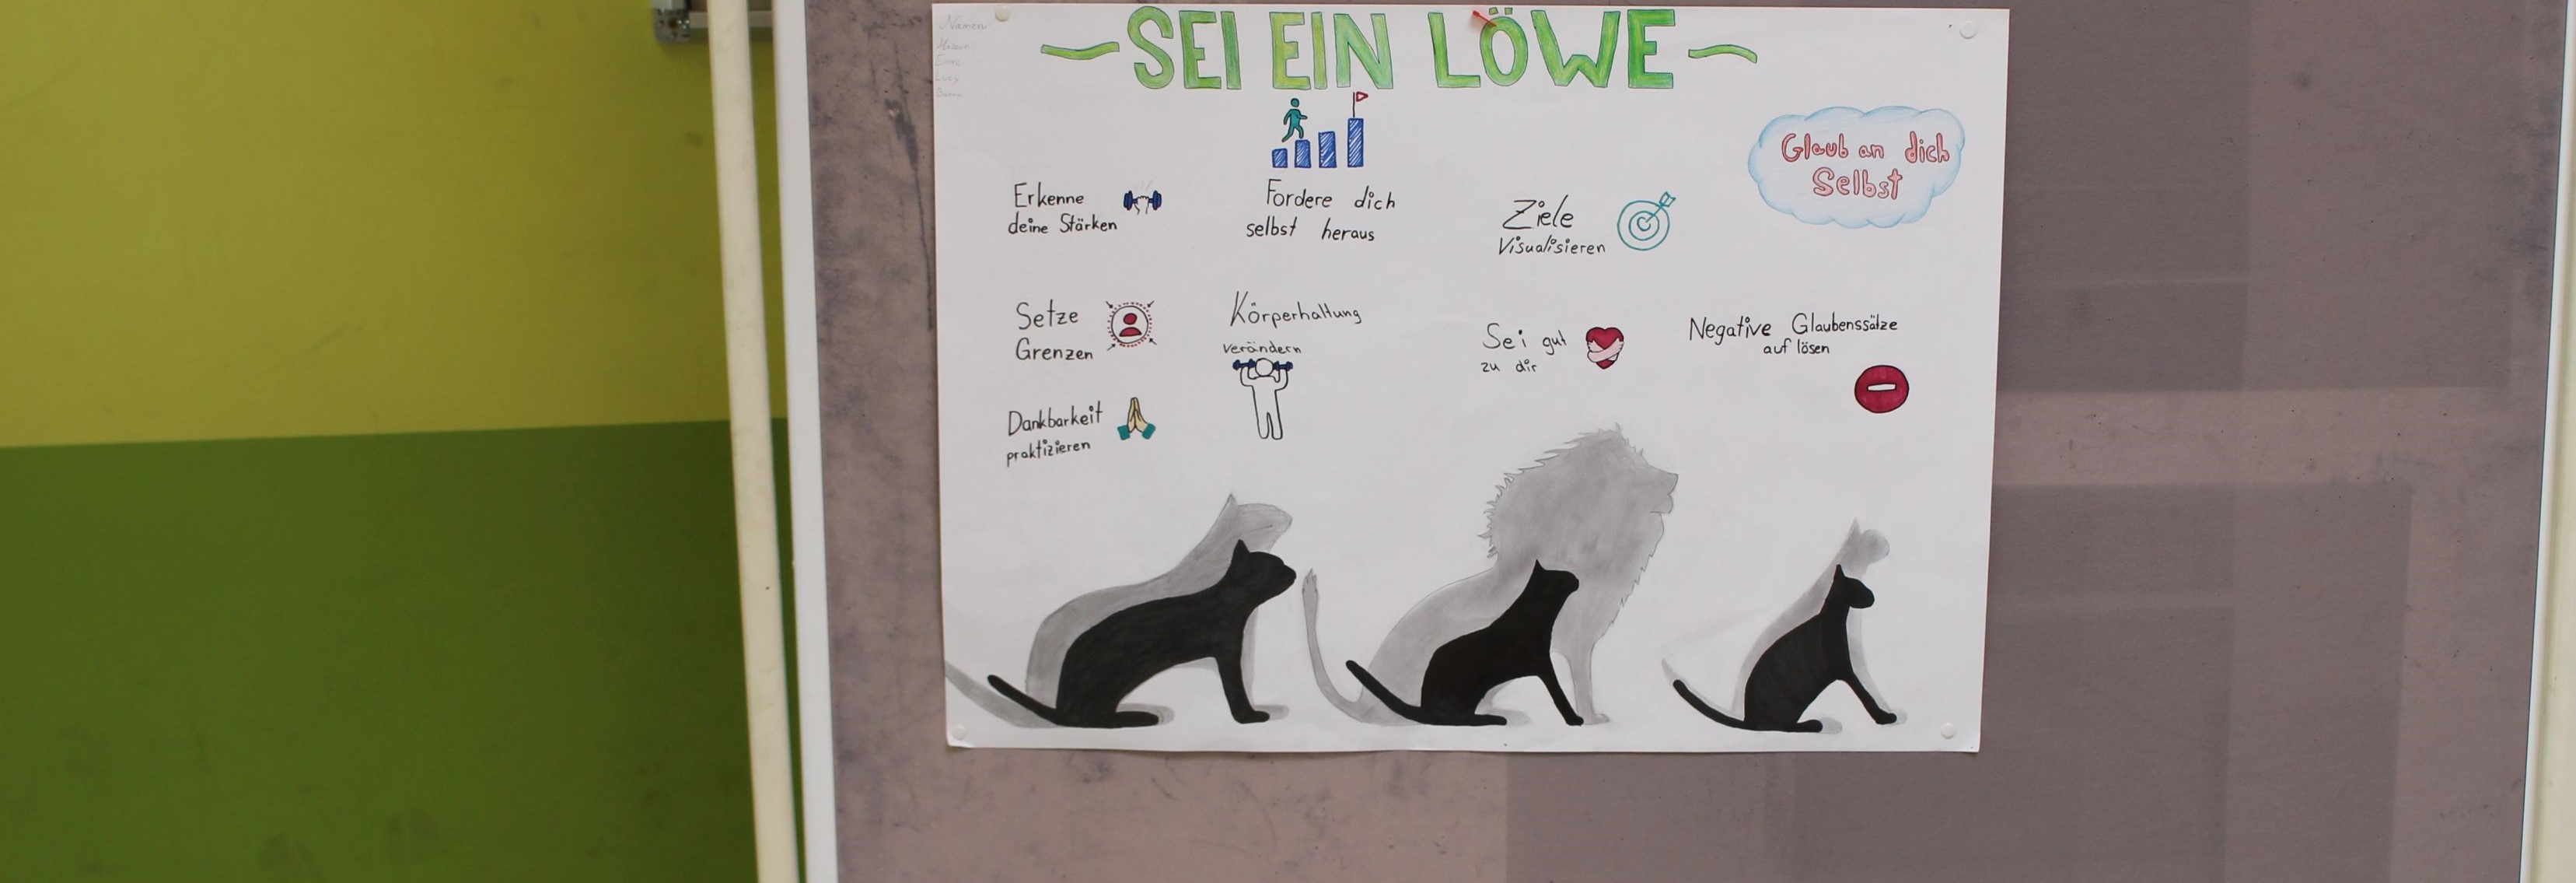 Namen
~SEI EIN LÖWE~
Glaub an dich
Selbst
Erkenne
deine Stärken
Fordere dich
selbst heraus
Ziele
Visualisieren
Setze
Grenzen
Körperhaltung
verändern
Sei gut
zu dir
Negative Glaubenssätze
auf lösen
Dankbarkeit
praktizieren